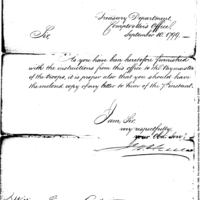 Treasury Department
Comptroller's Office
September 10. 1799.
Sir,
As you have been heretofore furnished
with the instructions from this office to the Paymaster
of the troops, it is proper also that you should have
the enclosed copy of my letter to him of the 7th instant.
I am, Sir
very respectfully,
your Obed. Servt